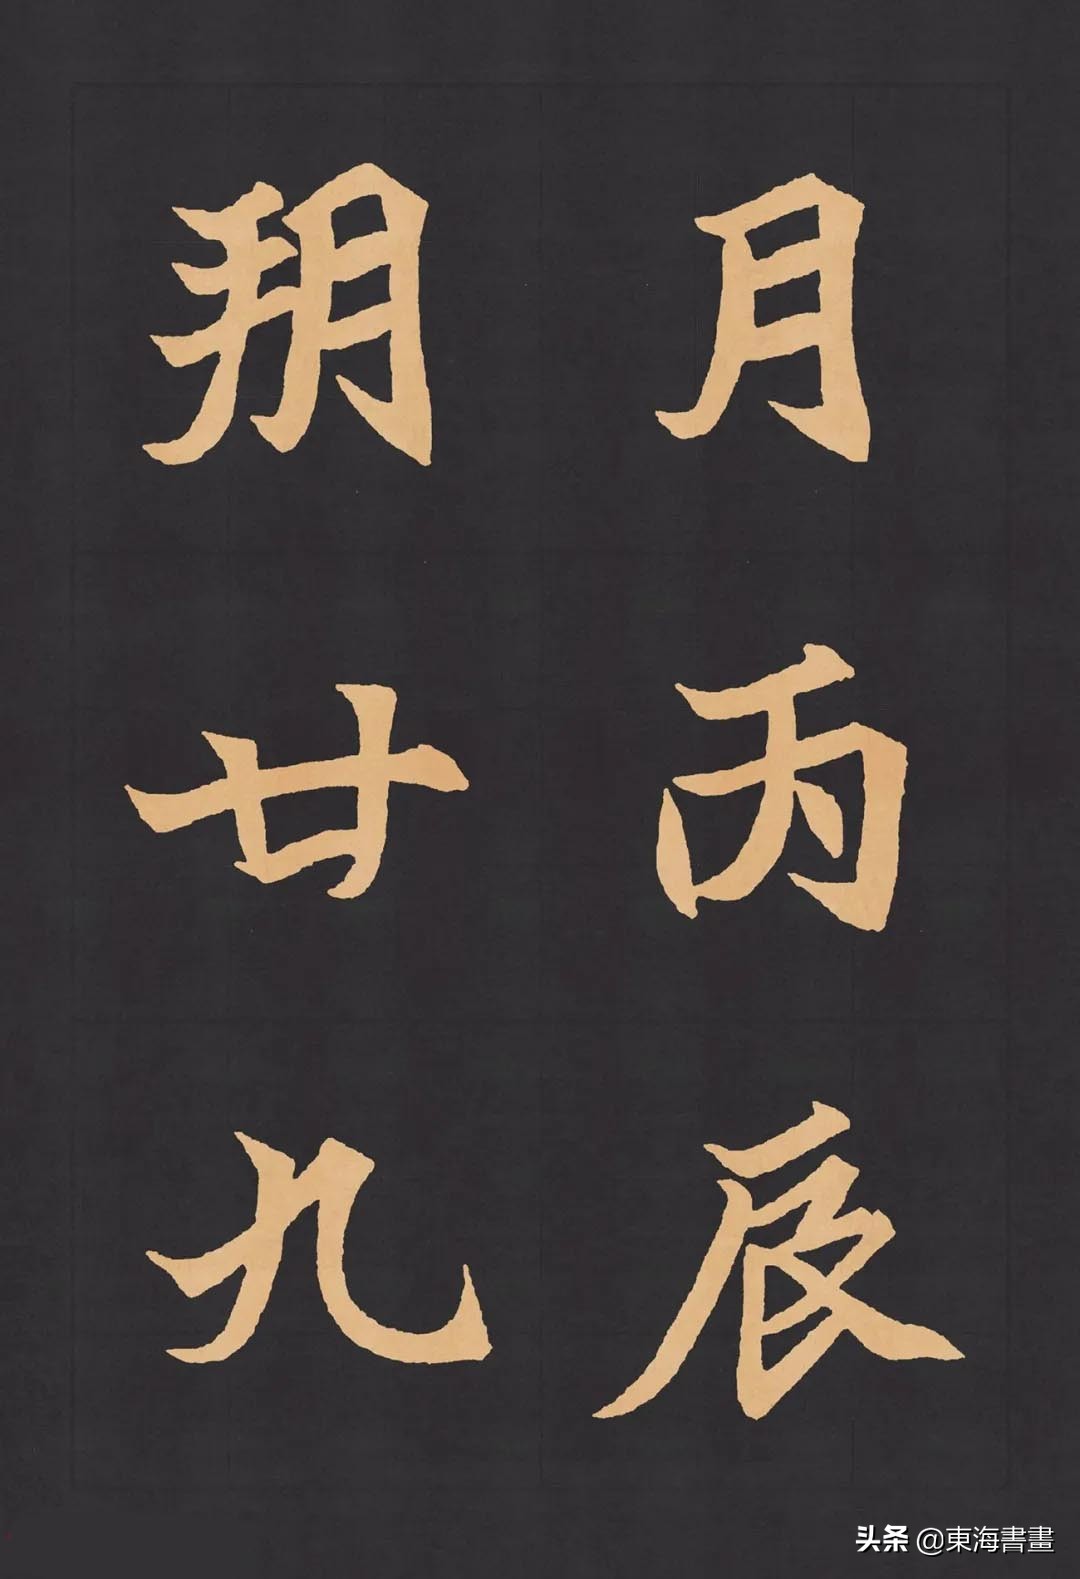 月丙辰
朔廿九
头条 @東海書畫